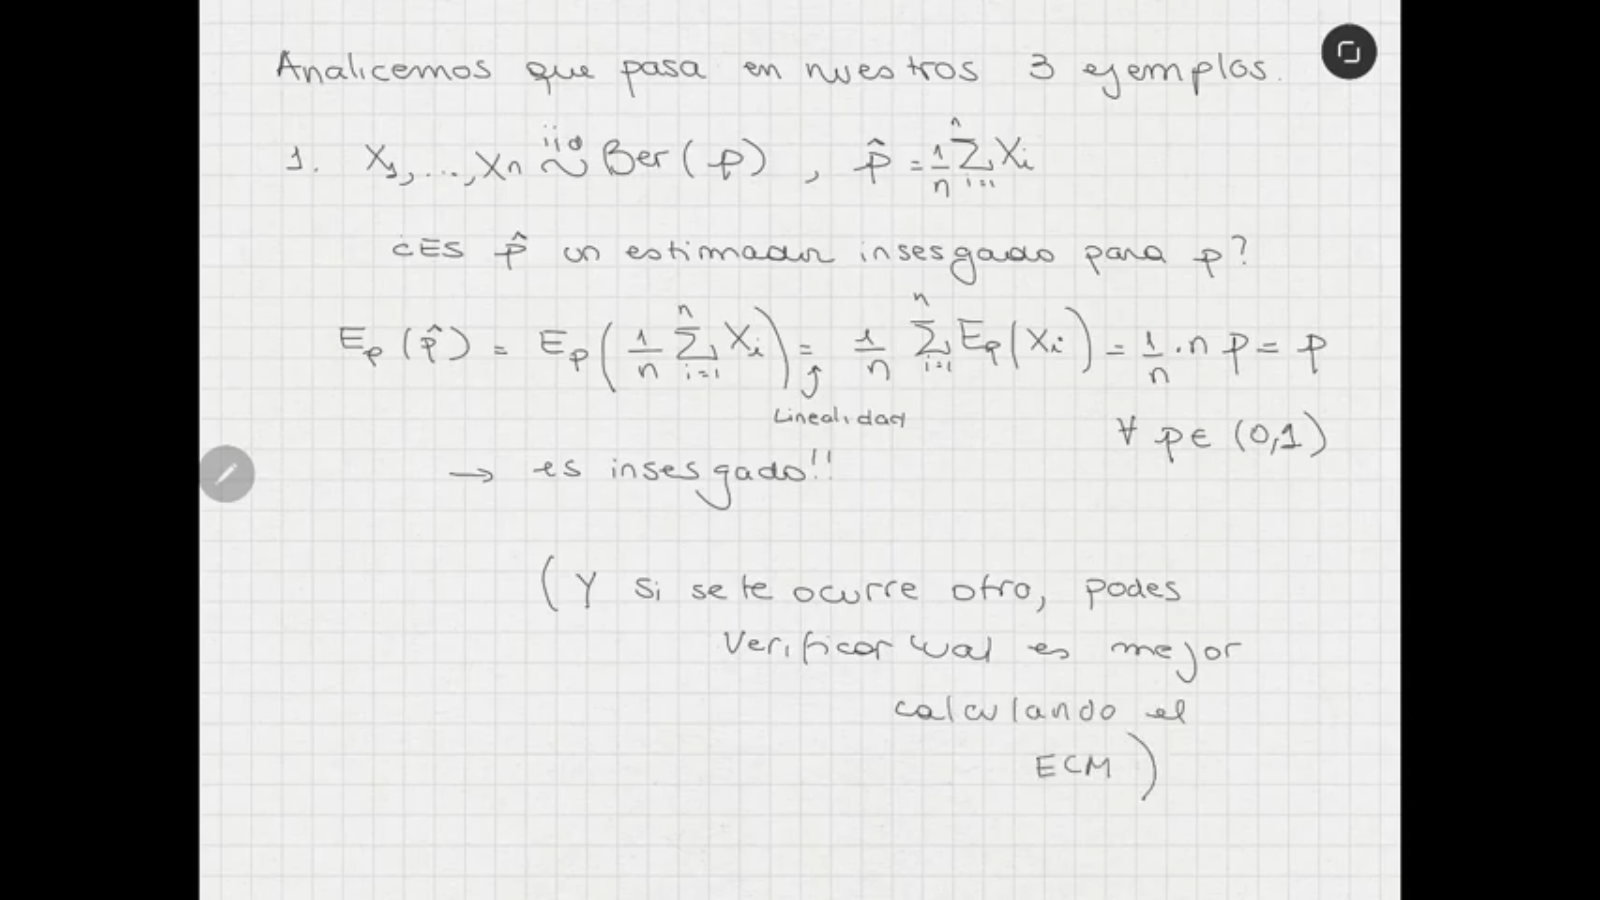 Analicemos que pasa en nuestros 3 ejemplos.
1. X₁, ..., Xn iid ~ Ber(p) , p̂ = 1/n ∑ᵢ₌₁ⁿ Xi
¿Es p̂ un estimador insesgado para p?
Ep(p̂) = Ep(1/n ∑ᵢ₌₁ⁿ Xi) = 1/n ∑ᵢ₌₁ⁿ Ep(Xi) = 1/n · n p = p
Linealidad
∀ p ∈ (0,1)
→ es insesgado!!
(Y si se te ocurre otro, podes
verificar cual es mejor
calculando el
ECM)